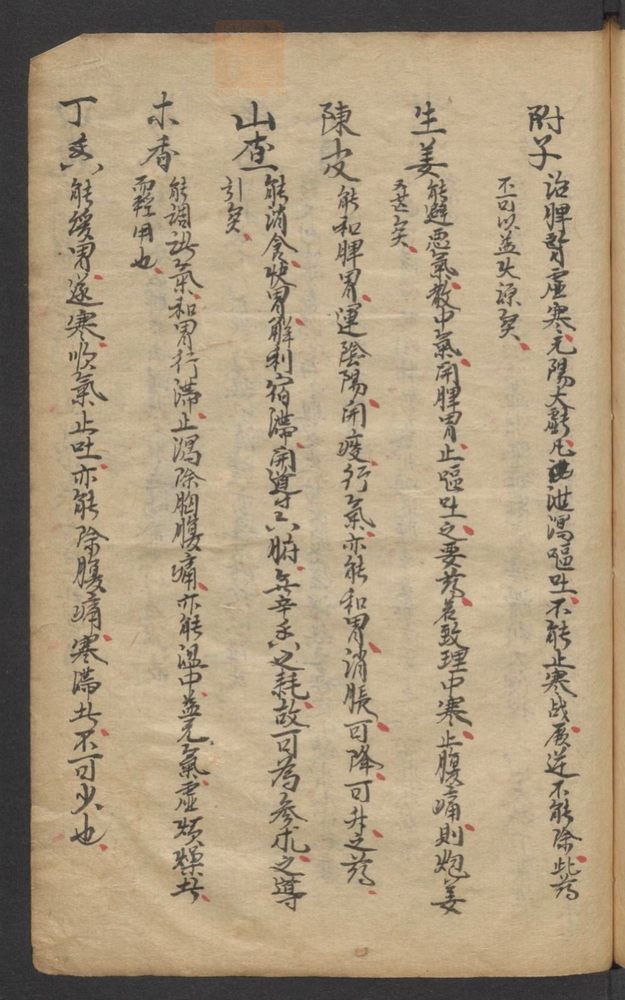 附子 治脾腎虛寒元陽大虧凡泄瀉嘔吐不能止寒战厥逆不能除此药
不可以益火源矣
生姜 能避恶氣教中氣開脾胃止嘔吐之要药若致理中寒止腹痛則炮姜
又甚矣
陳皮 能和脾胃運陰陽開痰行氣亦能和胃消脹可降可升之药
山查 能消食快胃解利宿滯開導六腑無辛香之耗故可為参朮之導
引矣
木香 能調諸氣和胃行滯止瀉除胸腹痛亦能温中益元氣虛煩燥者
而輕用也
丁香 能缓胃逐寒吹氣止吐亦能除腹痛寒滿者不可少也